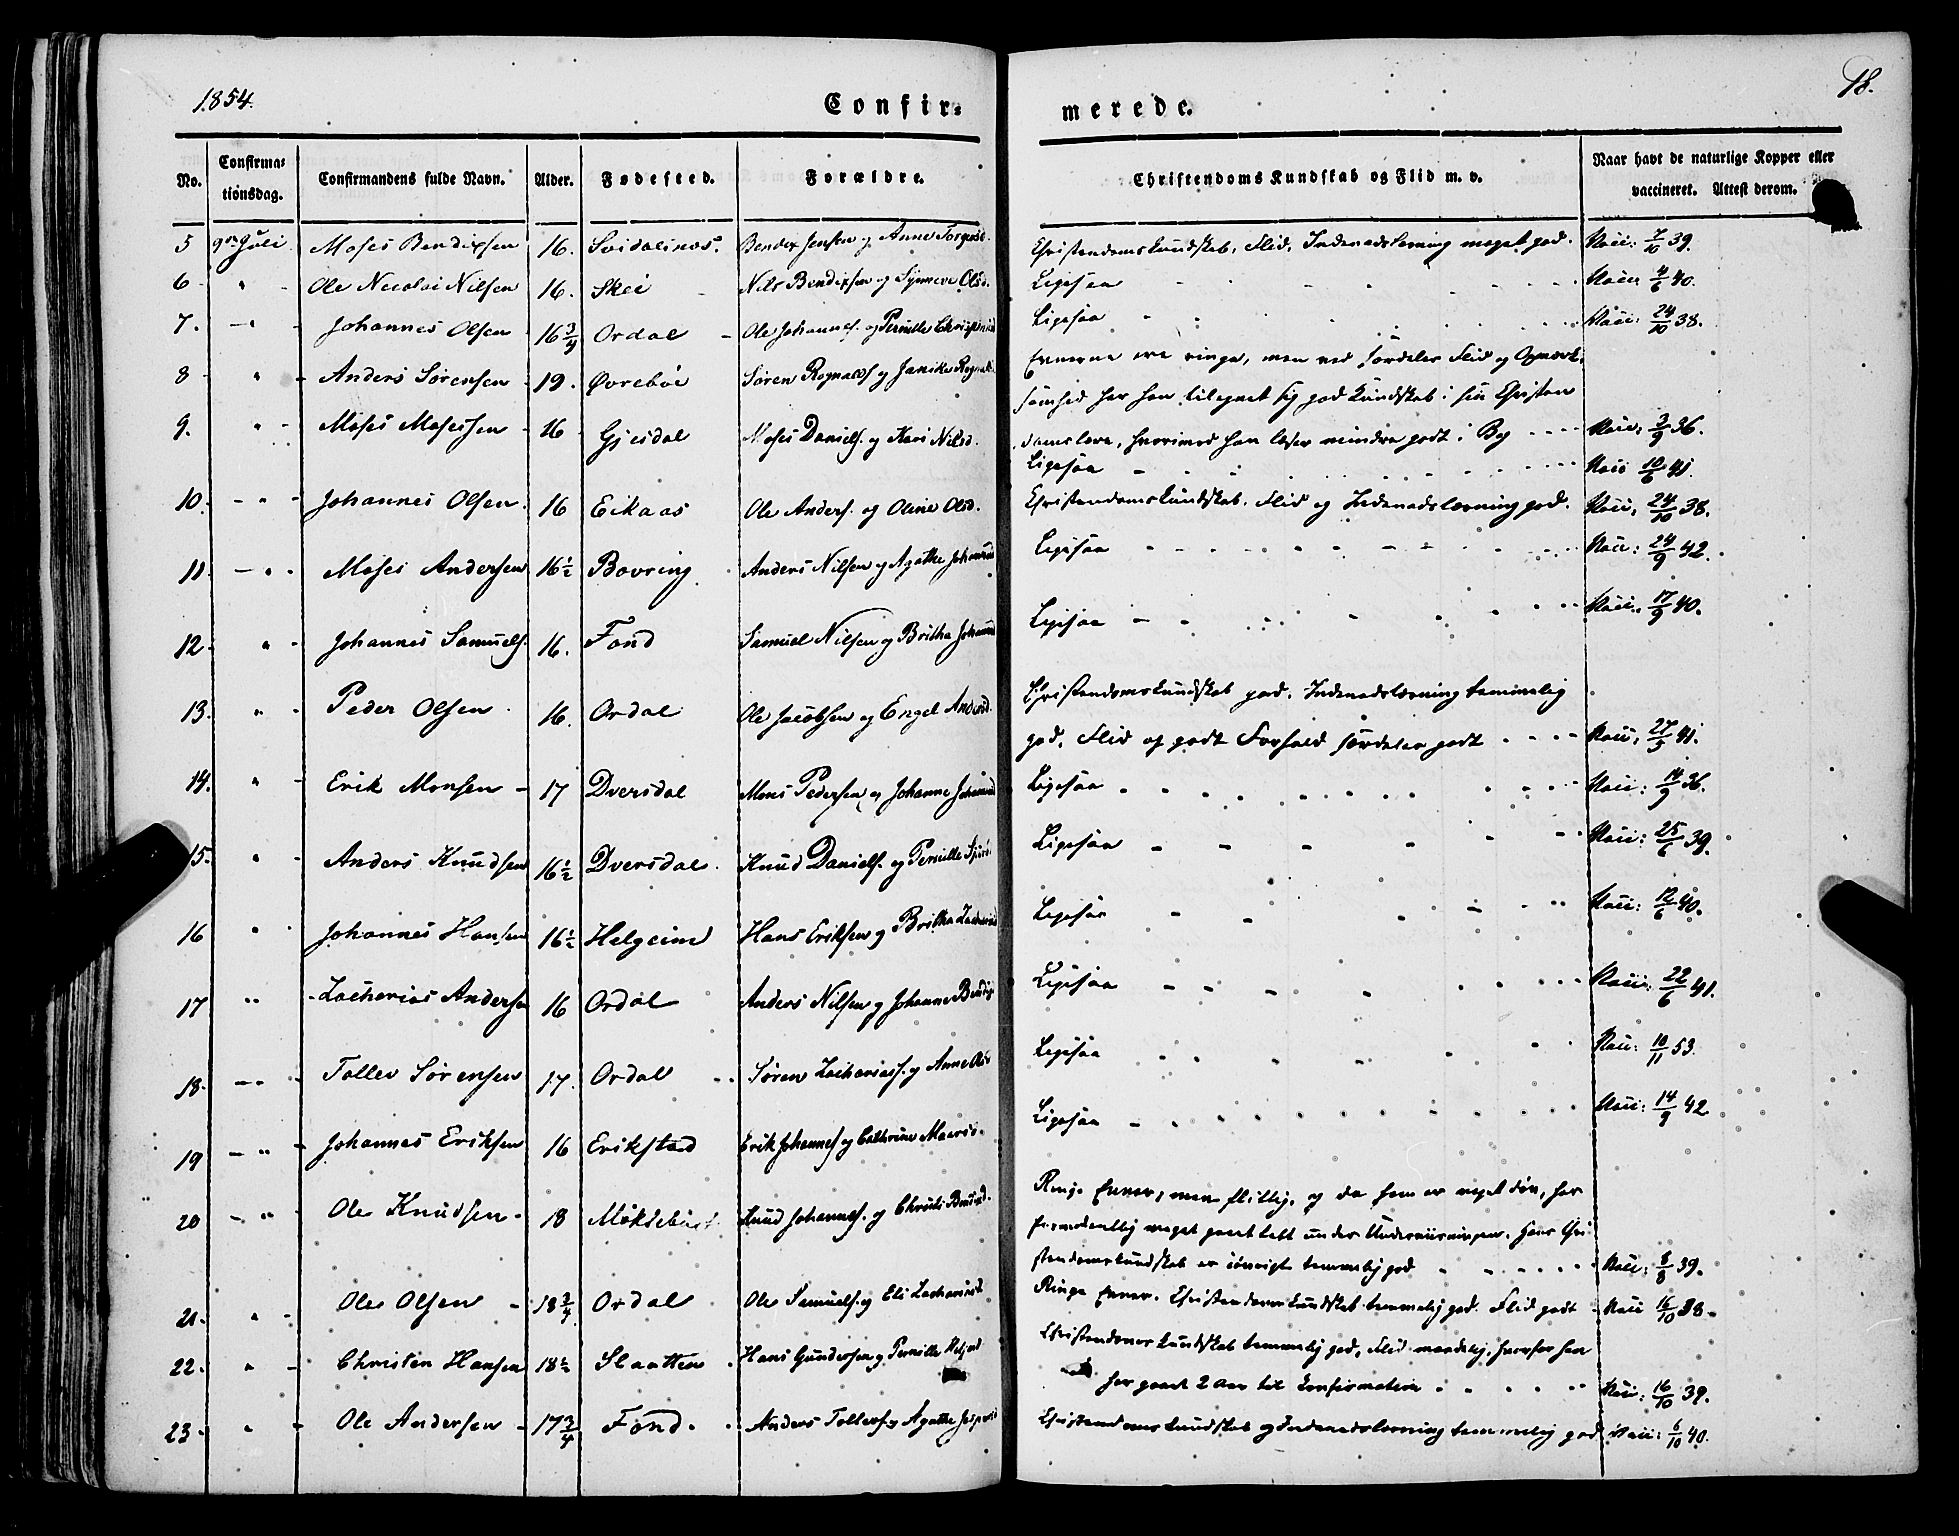 1854.
Confir=
merede.
18.
No.
Confirma=
tionsdag.
Confirmandens fulde Navn.
Alder.
Fødested.
Forældre.
Christendoms Kundskab og Flid m. v.
Naar havt de naturlige Kopper eller
vaccineret. Attest derom.
5 9de Juli Moses Bendixsen 16. Bendix Jensen og Anne Christendomskundskab, Flid, Indenadslæsning meget god. Vacc: 7/10 39.
6 " Ole Nicolai Nilsen 16. Skei Nils Bendixsen og Synneve Olsd. Ligesaa Vacc: 4/6 40.
7. " Johannes Olsen 16 3/4 Ordal Ole Johannes. og Pernille Ligesaa Vacc: 24/10 38.
8 " Anders Sørensen 19. Øvrebøe Søren Rognalds. og Janike Evnerne ere ringe, men ved særdeles Flid og Opmærk-
somhed har han tilegnet sig god Kundskab i sin Christen
domslære, hvorimod han læser mindre godt i Bog Vacc: 3/9 36.
9. " Moses Mosessen 16 Gjesdal Moses Daniels. og Kari Nilsd. Ligesaa Vacc 10/6 41.
10. " Johannes Olsen 16 Eikaas Ole Anders. og Oline Olsd. Christendomskundskab, Flid og Indenadslæsning god. Vacc: 24/10 38.
11 " Moses Andersen 16 1/2 Bovring Anders Nilsen og Agathe Ligesaa Vacc: 24/9 42.
12 " Johannes Samuels. 16. Fond Samuel Nilsen og Britha Ligesaa Vacc: 17/9 40.
13. " Peder Olsen 16. Ordal Ole Jacobsen og Engel Andersd. Christendomskundskab god, Indenadslæsning temmelig
god, Flid og godt Forhold særdeles godt Vacc: 41.
14. " Erik Monsen 17 Dversdal Mons Pedersen og Johanne Ligesaa Vacc: 14/9 36.
15. " Anders Knudsen 16 1/2 Dversdal Knud Daniels. og Pernille Ligesaa Vacc: 25/6 39.
16 " Johannes Hansen 16 1/2 Helgeim Hans Eriksen og Britha Ligesaa Vacc: 12/6 40.
17 " Zacharias Andersen 16 Ordal Anders Nilsen og Johanne Ligesaa Vacc: 22/6 41.
18. " Tollev Sørensen 17. Ordal Søren Zachariass. og Anne Ligesaa Vacc: 10/11 53.
19 " Johannes Eriksen 16 Erikstad Erik Johannes. og Cathrine Ligesaa Vacc: 14/9 42
20 " Ole Knudsen 18 Knud Johannes. og Ringe Evner, men flittig, og da han er meget døv, har
formodentlig meget gaaet tabt under Underviisningen. Hans Chri-
stendomskundskab er iøvrigt temmelig god Vacc: 8/8 39.
21. " Ole Olsen 18 3/4 Ordal Ole Samuels. og Eli Ringe Evner. Christendomskundskab temmelig god. Flid godt Vacc 16/10 38.
22. " Christen Hansen 18 1/2 Slaatten Hans Gundersen og Pernille Christendomskundskab temmelig god, Flid maadelig, hvorfor han
har gaaet 2 Aar til Confirmation Vacc: 16/10 39.
23 " Ole Andersen 17 3/4 Fond. Anders Tollefs. og Agathe Christendomskundskab og Indenadslæsning temmelig god Vacc: 6/10 40.